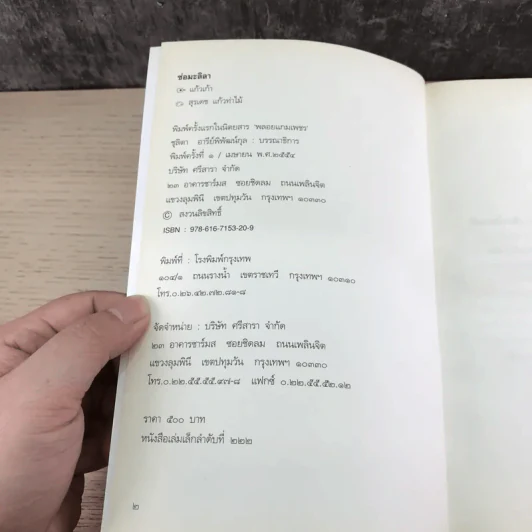 ช่อมะลิลา
แก้วเก้า
สุรเดช แก้วท่าไม้
พิมพ์ครั้งแรกในนิตยสาร 'พลอยแกมเพชร'
ชุลิตา อารีย์พิพัฒน์กุล : บรรณาธิการ
พิมพ์ครั้งที่ ๑ / เมษายน พ.ศ.๒๕๕๔
บริษัท ศรีสารา จำกัด
๒๓ อาคารชาร์มส ซอยชิดลม ถนนเพลินจิต
แขวงลุมพินี เขตปทุมวัน กรุงเทพฯ ๑๐๓๓๐
© สงวนลิขสิทธิ์
ISBN : 978-616-7153-20-9
พิมพ์ที่ : โรงพิมพ์กรุงเทพ
๑๐๔/๑ ถนนรางน้ำ เขตราชเทวี กรุงเทพฯ ๑๐๓๑๐
โทร.๐.๒๖.๔๒.๗๒.๘๑-๘
จัดจำหน่าย : บริษัท ศรีสารา จำกัด
๒๓ อาคารชาร์มส ซอยชิดลม ถนนเพลินจิต
แขวงลุมพินี เขตปทุมวัน กรุงเทพฯ ๑๐๓๓๐
โทร.๐.๒๒.๕๕.๕๕.๔๗-๘ แฟกซ์ ๐.๒๒.๕๕.๕๒.๑๒
ราคา ๕๐๐ บาท
หนังสือเล่มเล็กลำดับที่ ๒๒๒
๒